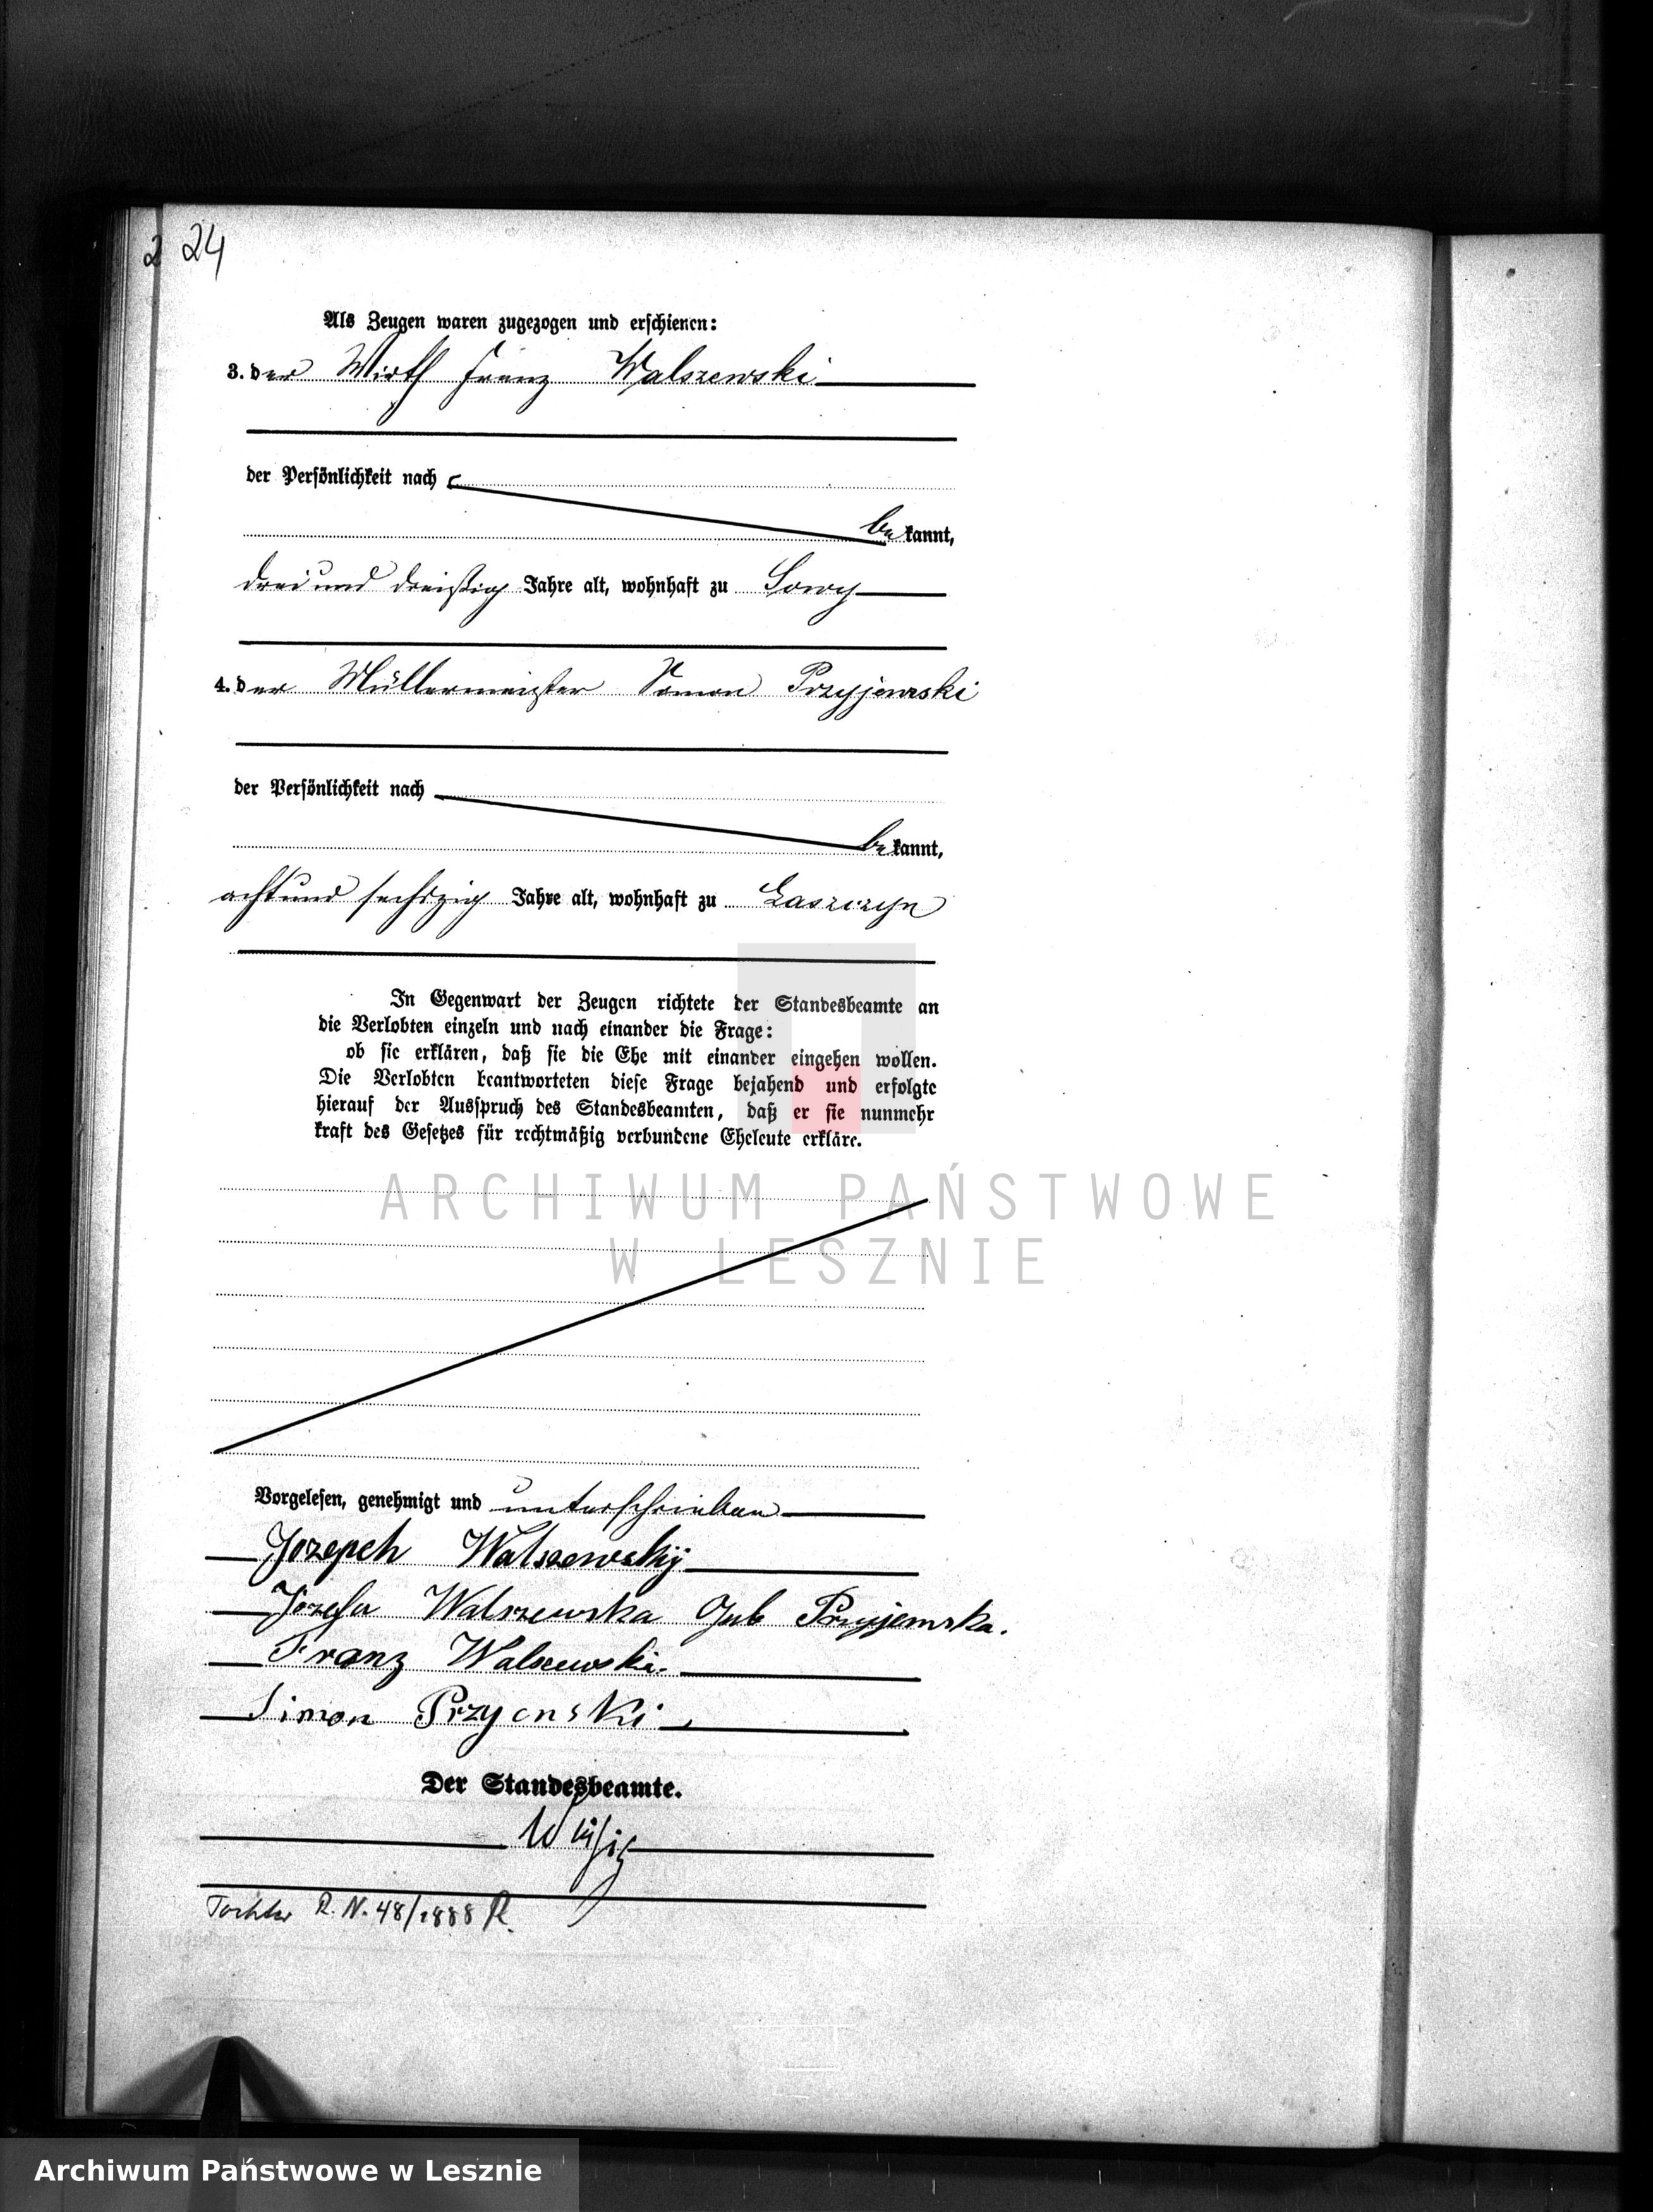 2 24
Als Zeugen waren zugezogen und erschienen:
3. der Wirth Franz Walszewski
der Persönlichkeit nach
bekannt,
drei und dreißig Jahre alt, wohnhaft zu Sowy
4. der Müllermeister Simon Przyjemski
der Persönlichkeit nach
bekannt,
acht und sechszig Jahre alt, wohnhaft zu Łaszczyn
In Gegenwart der Zeugen richtete der Standesbeamte an
die Verlobten einzeln und nach einander die Frage:
ob sie erklären, daß sie die Ehe mit einander eingehen wollen.
Die Verlobten beantworteten diese Frage bejahend und erfolgte
hierauf der Ausspruch des Standesbeamten, daß er sie nunmehr
kraft des Gesetzes für rechtmäßig verbundene Eheleute erkläre.
ARCHIWUM PAŃSTWOWE
W LESZNIE
Vorgelesen, genehmigt und unterschrieben
Jozepch Walszewskÿ
Józefa Walszewska Geb Przyjemska.
Franz Walszewski.
Simon Przyenski
Der Standesbeamte.
Tochter R. N. 48/1888 R.
Archiwum Państwowe w Lesznie